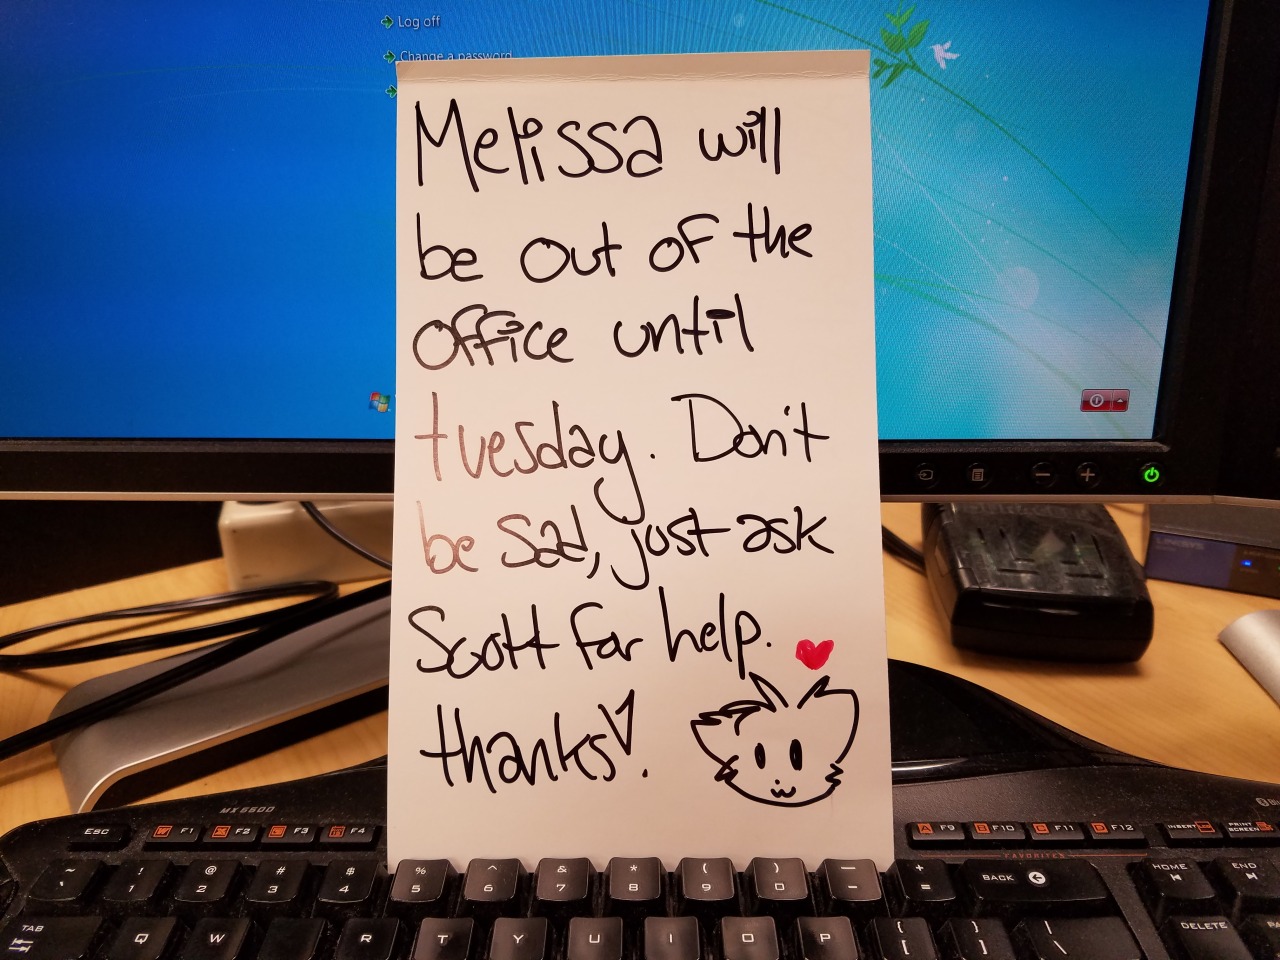 Log off
Change a password
Melissa will
be out of the
office until
tuesday. Don't
be sad, just ask
Scott for help.
thanks!
MX5500
ESC F1 F2 F3 F4 A F9 B F10 C F11 D F12 INSERT PRINT SCREEN
FAVORITES
~ ` ! 1 @ 2 # 3 $ 4 % 5 ^ 6 & 7 * 8 ( 9 ) 0 — - + = BACK HOME END
TAB Q W R T Y U I O P { [ } ] | \ DELETE